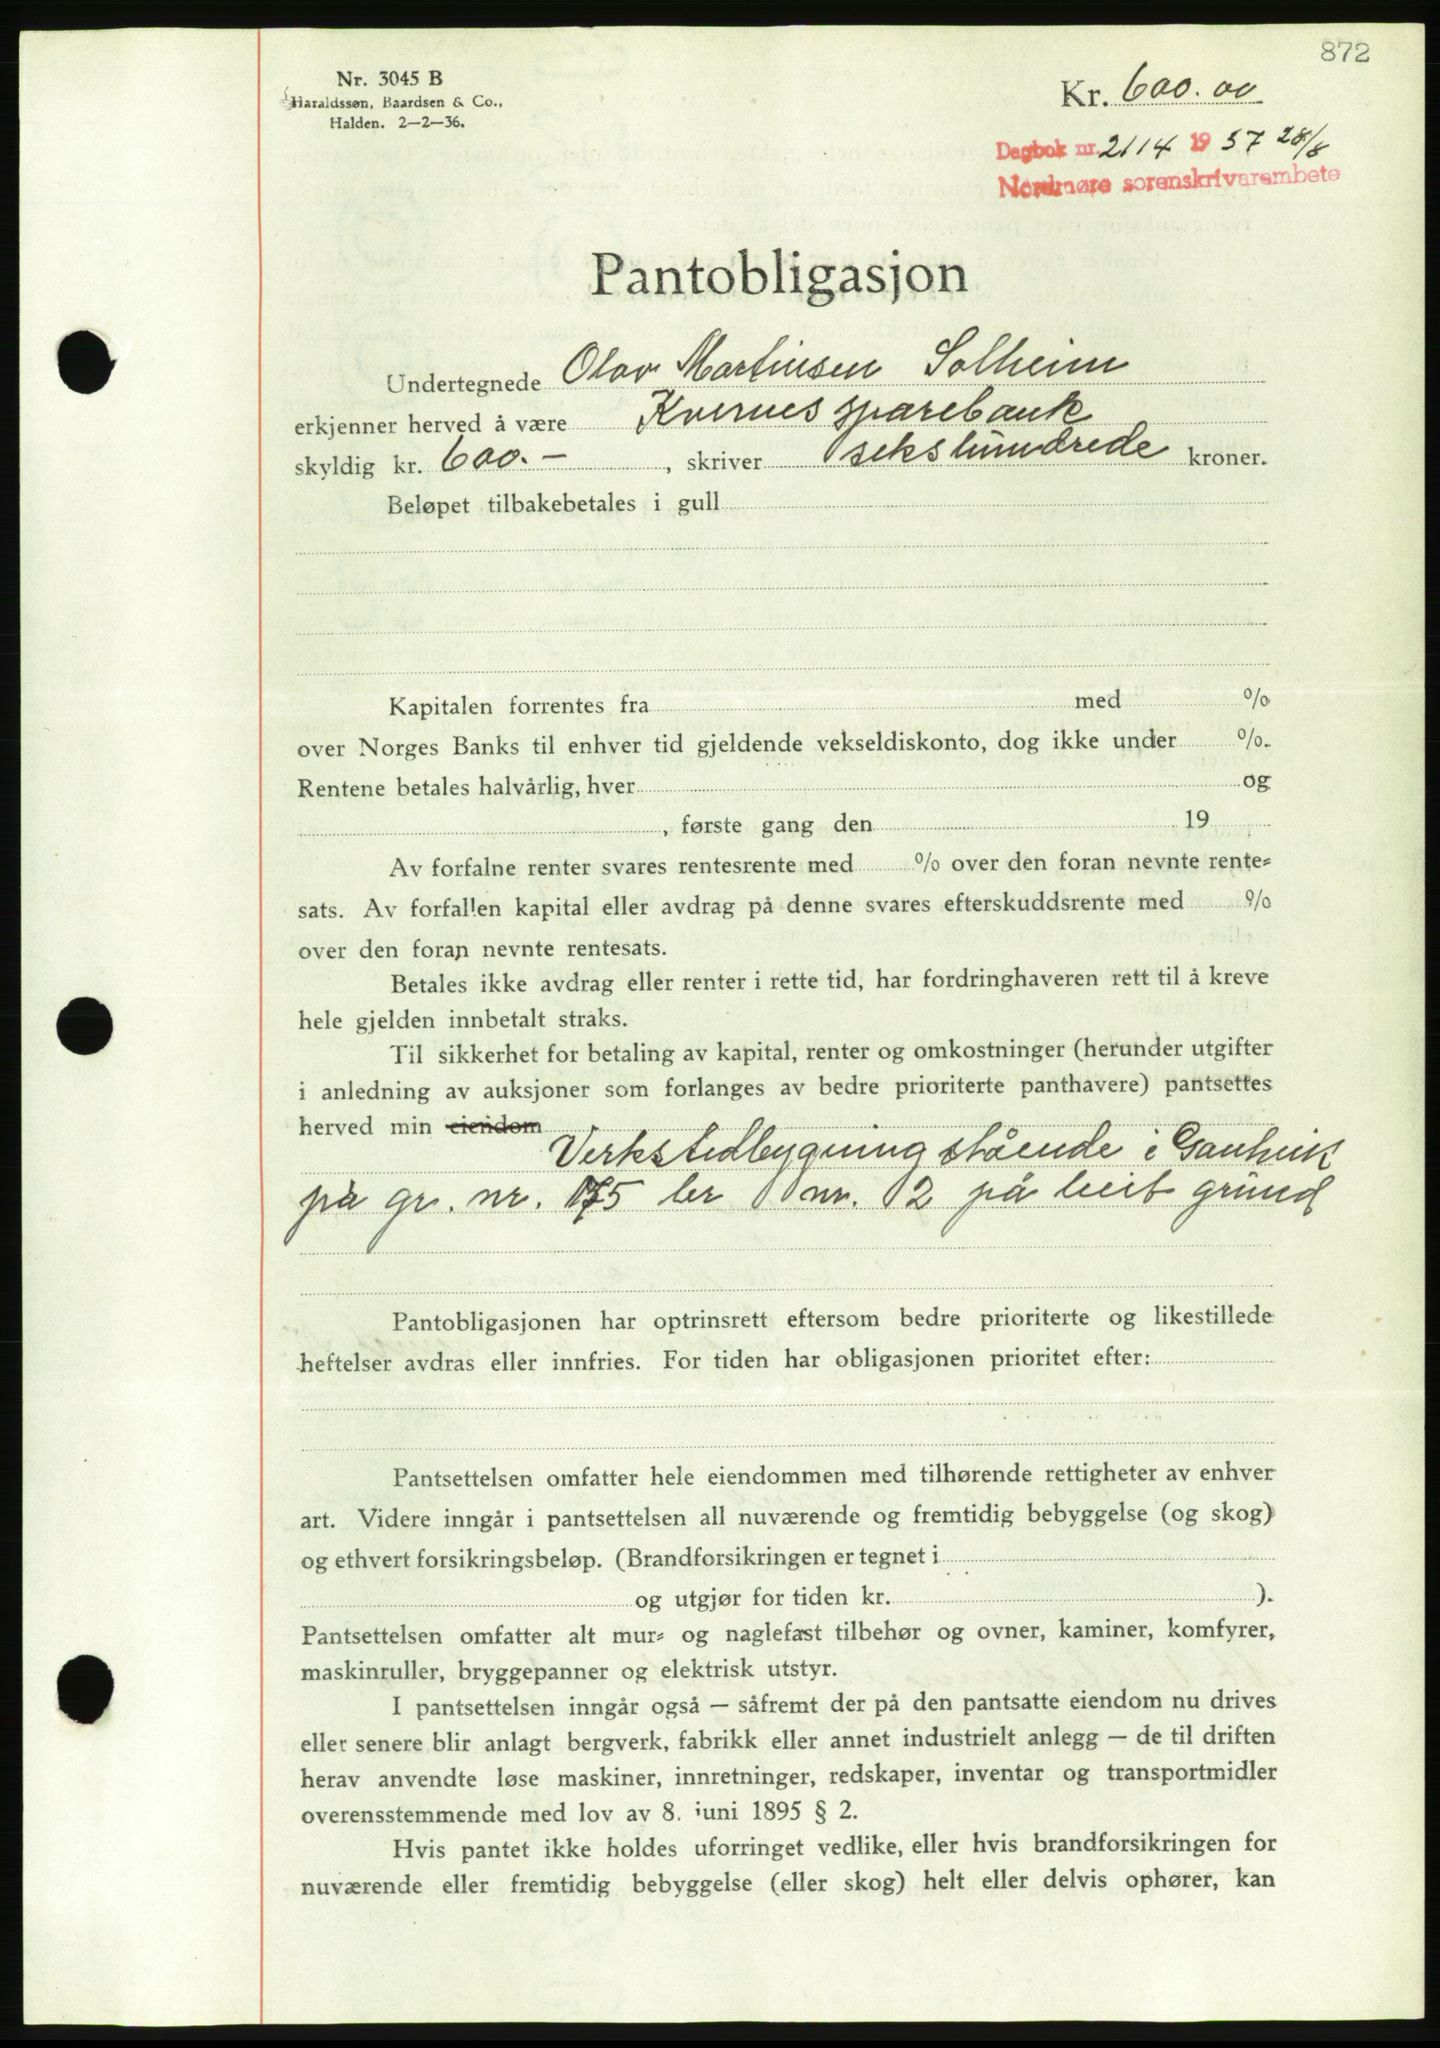 872
Nr. 3045 B
Haraldssøn, Baardsen & Co.,
Halden. 2-2-36.
Kr. 600.00
Dagbok nr. 2114 19 37 28/8
Nordmøre sorenskrivarembete
Pantobligasjon
Undertegnede Olav Martinsen Solheim
erkjenner herved å være Kvernes sparebank
skyldig kr. 600.-, skriver sekshundrede kroner.
Beløpet tilbakebetales i gull
Kapitalen forrentes fra med %
over Norges Banks til enhver tid gjeldende vekseldiskonto, dog ikke under %.
Rentene betales halvårlig, hver og
, første gang den 19
Av forfalne renter svares rentesrente med % over den foran nevnte rente-
sats. Av forfallen kapital eller avdrag på denne svares efterskuddsrente med %
over den foran nevnte rentesats.
Betales ikke avdrag eller renter i rette tid, har fordringhaveren rett til å kreve
hele gjelden innbetalt straks.
Til sikkerhet for betaling av kapital, renter og omkostninger (herunder utgifter
i anledning av auksjoner som forlanges av bedre prioriterte panthavere) pantsettes
herved min eiendom
Verkstedbygning stående i
på gr. nr. 175 br nr. 2 på leiet grund
Pantobligasjonen har optrinsrett eftersom bedre prioriterte og likestillede
heftelser avdras eller innfries. For tiden har obligasjonen prioritet efter:
Pantsettelsen omfatter hele eiendommen med tilhørende rettigheter av enhver
art. Videre inngår i pantsettelsen all nuværende og fremtidig bebyggelse (og skog)
og ethvert forsikringsbeløp. (Brandforsikringen er tegnet i
og utgjør for tiden kr. ).
Pantsettelsen omfatter alt mur- og naglefast tilbehør og ovner, kaminer, komfyrer,
maskinruller, bryggepanner og elektrisk utstyr.
I pantsettelsen inngår også — såfremt der på den pantsatte eiendom nu drives
eller senere blir anlagt bergverk, fabrikk eller annet industrielt anlegg — de til driften
herav anvendte løse maskiner, innretninger, redskaper, inventar og transportmidler
overensstemmende med lov av 8. juni 1895 § 2.
Hvis pantet ikke holdes uforringet vedlike, eller hvis brandforsikringen for
nuværende eller fremtidig bebyggelse (eller skog) helt eller delvis ophører, kan